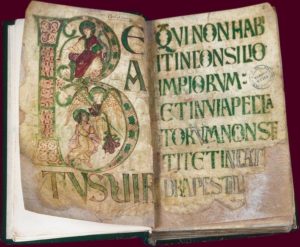 B E
A
TUSUIR
QVINONHAB
ITINCONSILIO
IMPIORVM
ETINVIAPECCA
TORVMNONS
TITETIN
DRAPESTIL